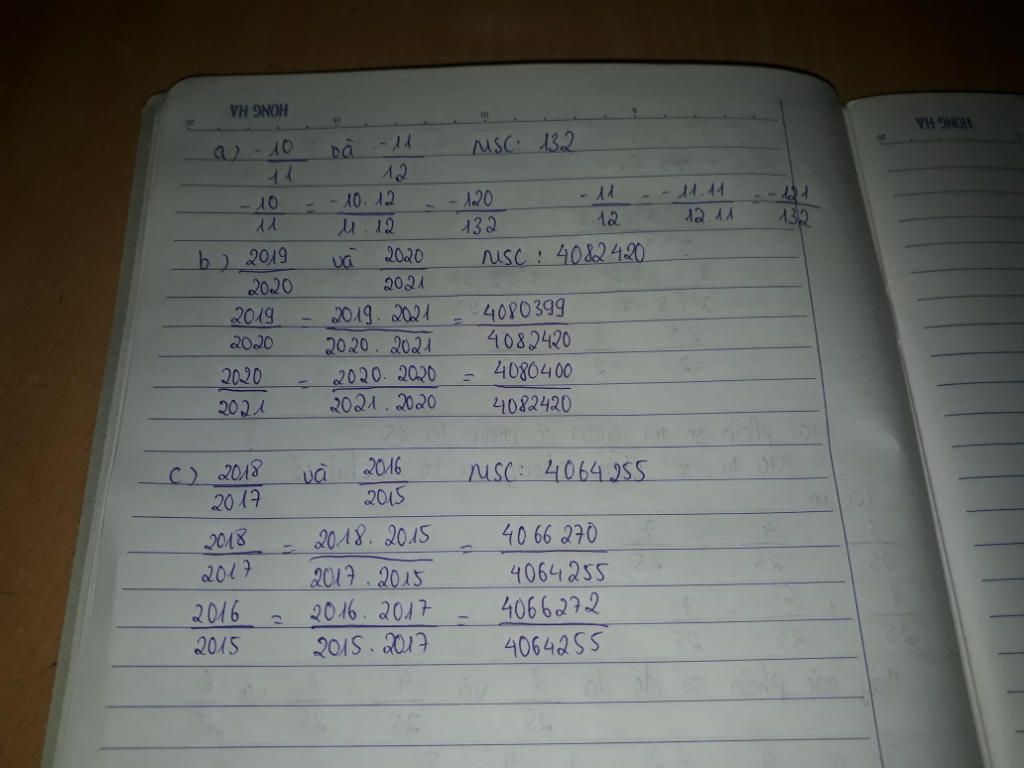 HONG HA
HONG HA
a) -10/11 và -11/12 MSC: 132
-10/11 = -10.12/11.12 = -120/132 -11/12 = -11.11/12.11 = -121/132
b) 2019/2020 và 2020/2021 MSC: 4082420
2019/2020 = 2019.2021/2020.2021 = 4080399/4082420
2020/2021 = 2020.2020/2021.2020 = 4080400/4082420
c) 2018/2017 và 2016/2015 MSC: 4064255
2018/2017 = 2018.2015/2017.2015 = 4066270/4064255
2016/2015 = 2016.2017/2015.2017 = 4066272/4064255